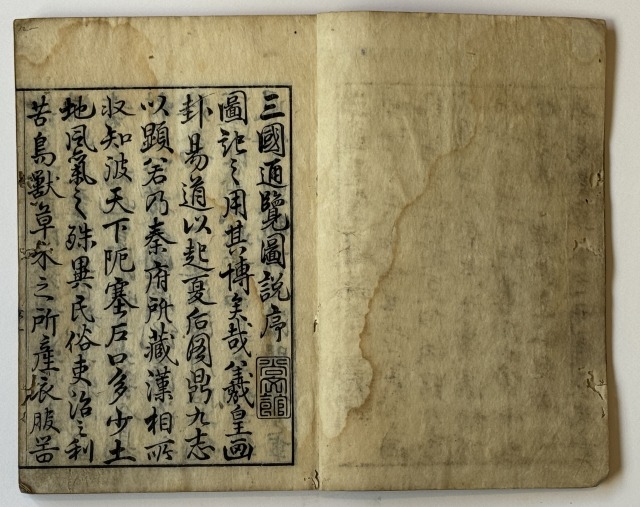 三國通覽圖説序
圖記之用其博矣哉羲皇画
卦易道以起夏后图鼎九志
以顯若乃秦府所藏漢相所
収知彼天下阨塞戸口多少土
地風氣之殊異民俗吏治之利
苦鳥獸草木之所產衣服